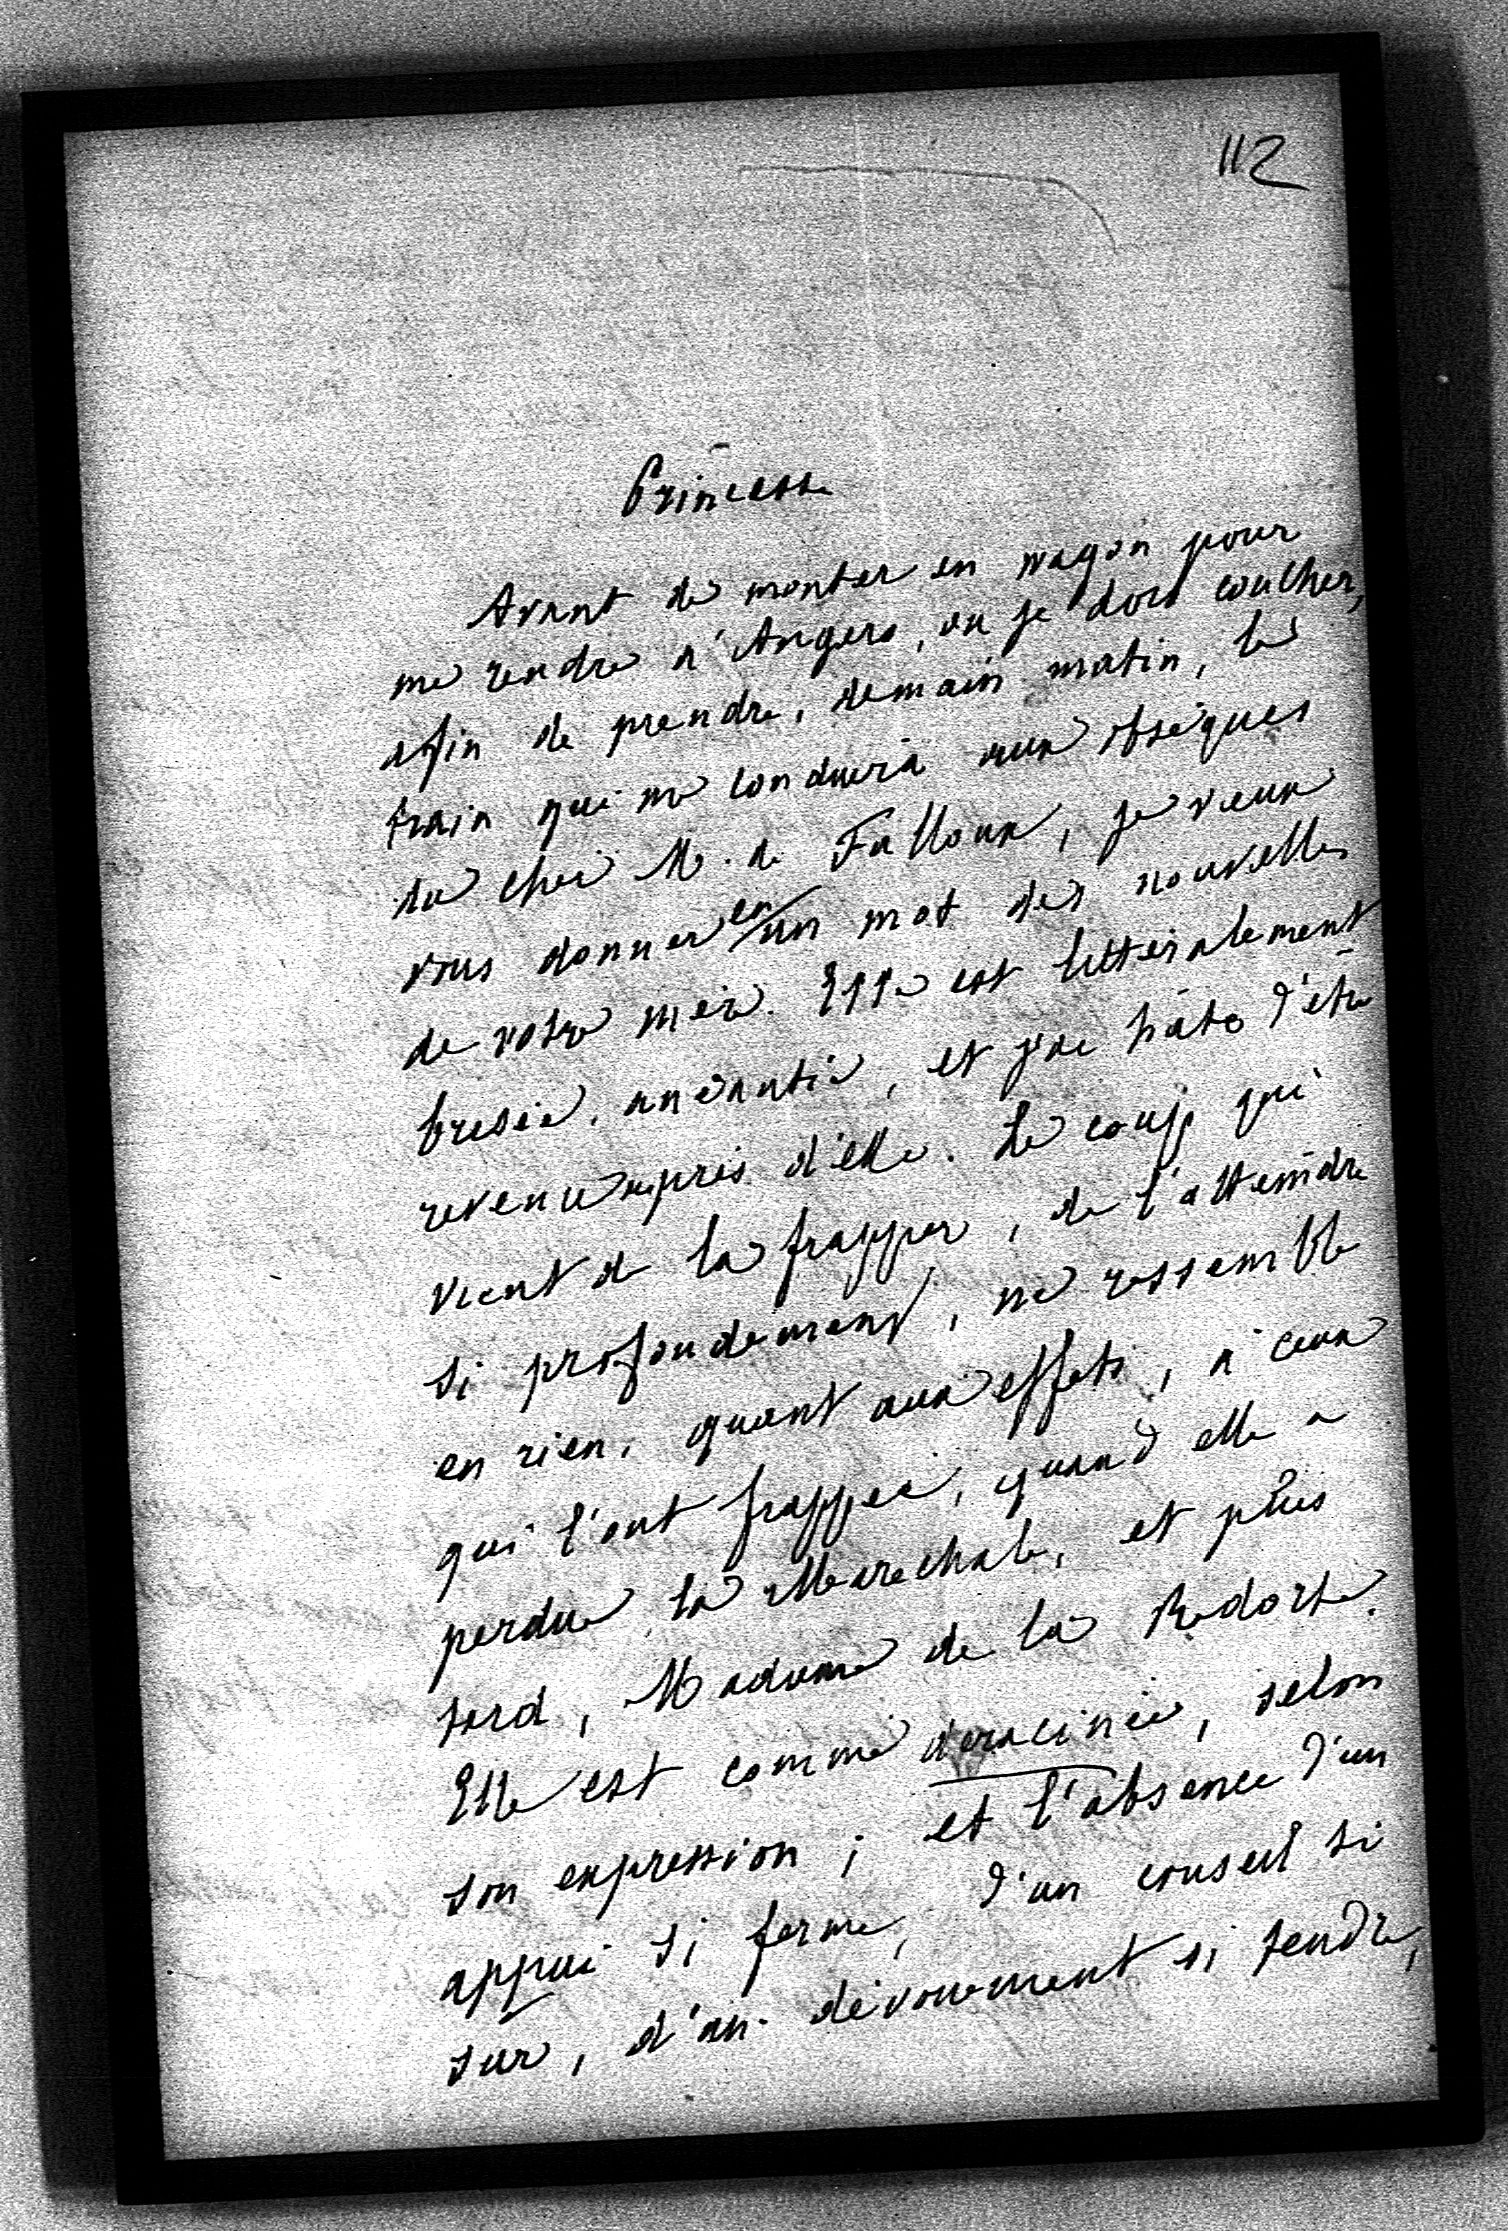 112
Princesse
Avant de monter en wagon pour
me rendre à Angers, où je dois coucher,
afin de prendre, demain matin, le
train qui me conduira aux obsèques
du cher M. de Falloux, je veux
vous donner en un mot des nouvelles
de votre mère. Elle est littéralement
brisée, anéantie, et j'ai hâte d'être
revenu auprès d'elle. Le coup qui
vient de la frapper, de l'atteindre
si profondément, ne ressemble
en rien, quant aux effets, à ceux
qui l'ont frappée, quand elle a
perdue la Maréchale, et plus
tard, Madame de la Redorte.
Elle est comme déracinée, selon
son expression ; et l'absence d'un
appui si ferme, d'un conseil si
sur, d'un dévouement si tendre,